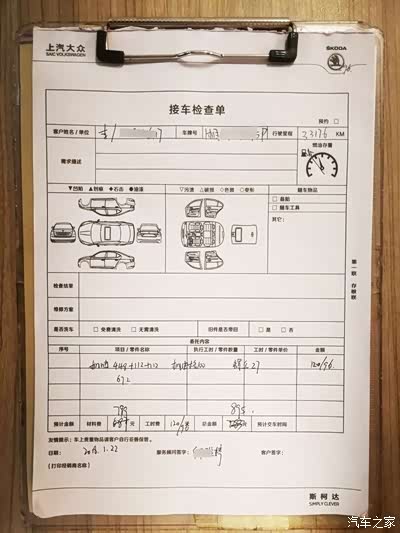 上汽大众 ŠKODA
SAIC VOLKSWAGEN
接车检查单
预约 □
客户姓名/单位 车牌号 行驶里程 23176 KM
需求描述 燃油存量
▼凹陷 ▲划痕 ◆石击 ●油漆 ▽污渍 △破损 ◇色斑 ○变形 随车物品
□ 备胎
□ 随车工具
其它:
检查结果
维修方案
是否洗车 □ 免费清洗 □ 无需清洗 旧件是否带回 □ 是 □ 否
委托内容
序号 项目/零件名称 执行工时/零件数量 工时/零件单价 金额
672
120/96
785 895
预计金额 材料费 元 工时费 120/96 元 总金额 元 预计交车时间
友情提示:车上贵重物品请客户自行妥善保管。
日期: 2018.1.22 服务顾问签字: 客户签字:
(打印经销商名称)
第一联 存根联
斯柯达
SIMPLY CLEVER
汽车之家